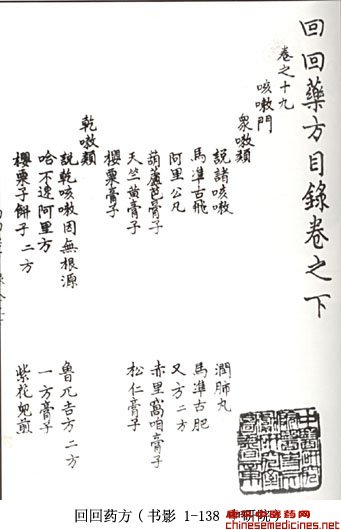 回回藥方目錄卷之下
卷之十九
咳嗽門
衆嗽類
說諸咳嗽 潤肺丸
馬準古飛 馬準古肥
阿里公凡 又方二方
葫蘆芭膏子 赤里窩咱膏子
天竺黃膏子 松仁膏子
櫻粟膏子
乾嗽類
說乾嗽因無根源 魯兀吉方二方
哈不邊阿里方 一方膏子
櫻粟子餅子二方 紫花兒煎
回回药方（书影 1-138
chinesemedicines.net